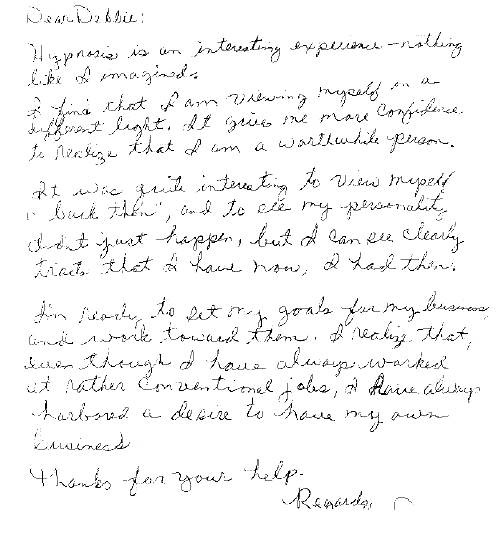 Dear Debbie:
Hypnosis is an interesting experience - nothing
like I imagined.
I find that I am viewing myself in a
different light. It gives me more confidence
to realize that I am a worthwhile person.
It was quite interesting to view myself
"back then", and to see my personality
didn't just happen, but I can see clearly
traits that I have now, I had then.
I'm ready to set my goals for my business
and work toward them. I realize that,
even though I have always worked
at rather conventional jobs, I have always
harbored a desire to have my own
business
Thanks for your help.
Regards,